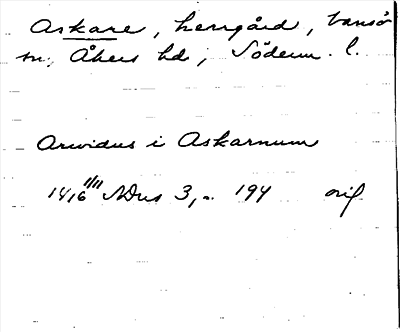 Askare, herrgård, Vansö
sn, Åkers hd, Söderm. l.
Arvidus i Askarnum
1416 1/11 NDns 3, s. 194 orig